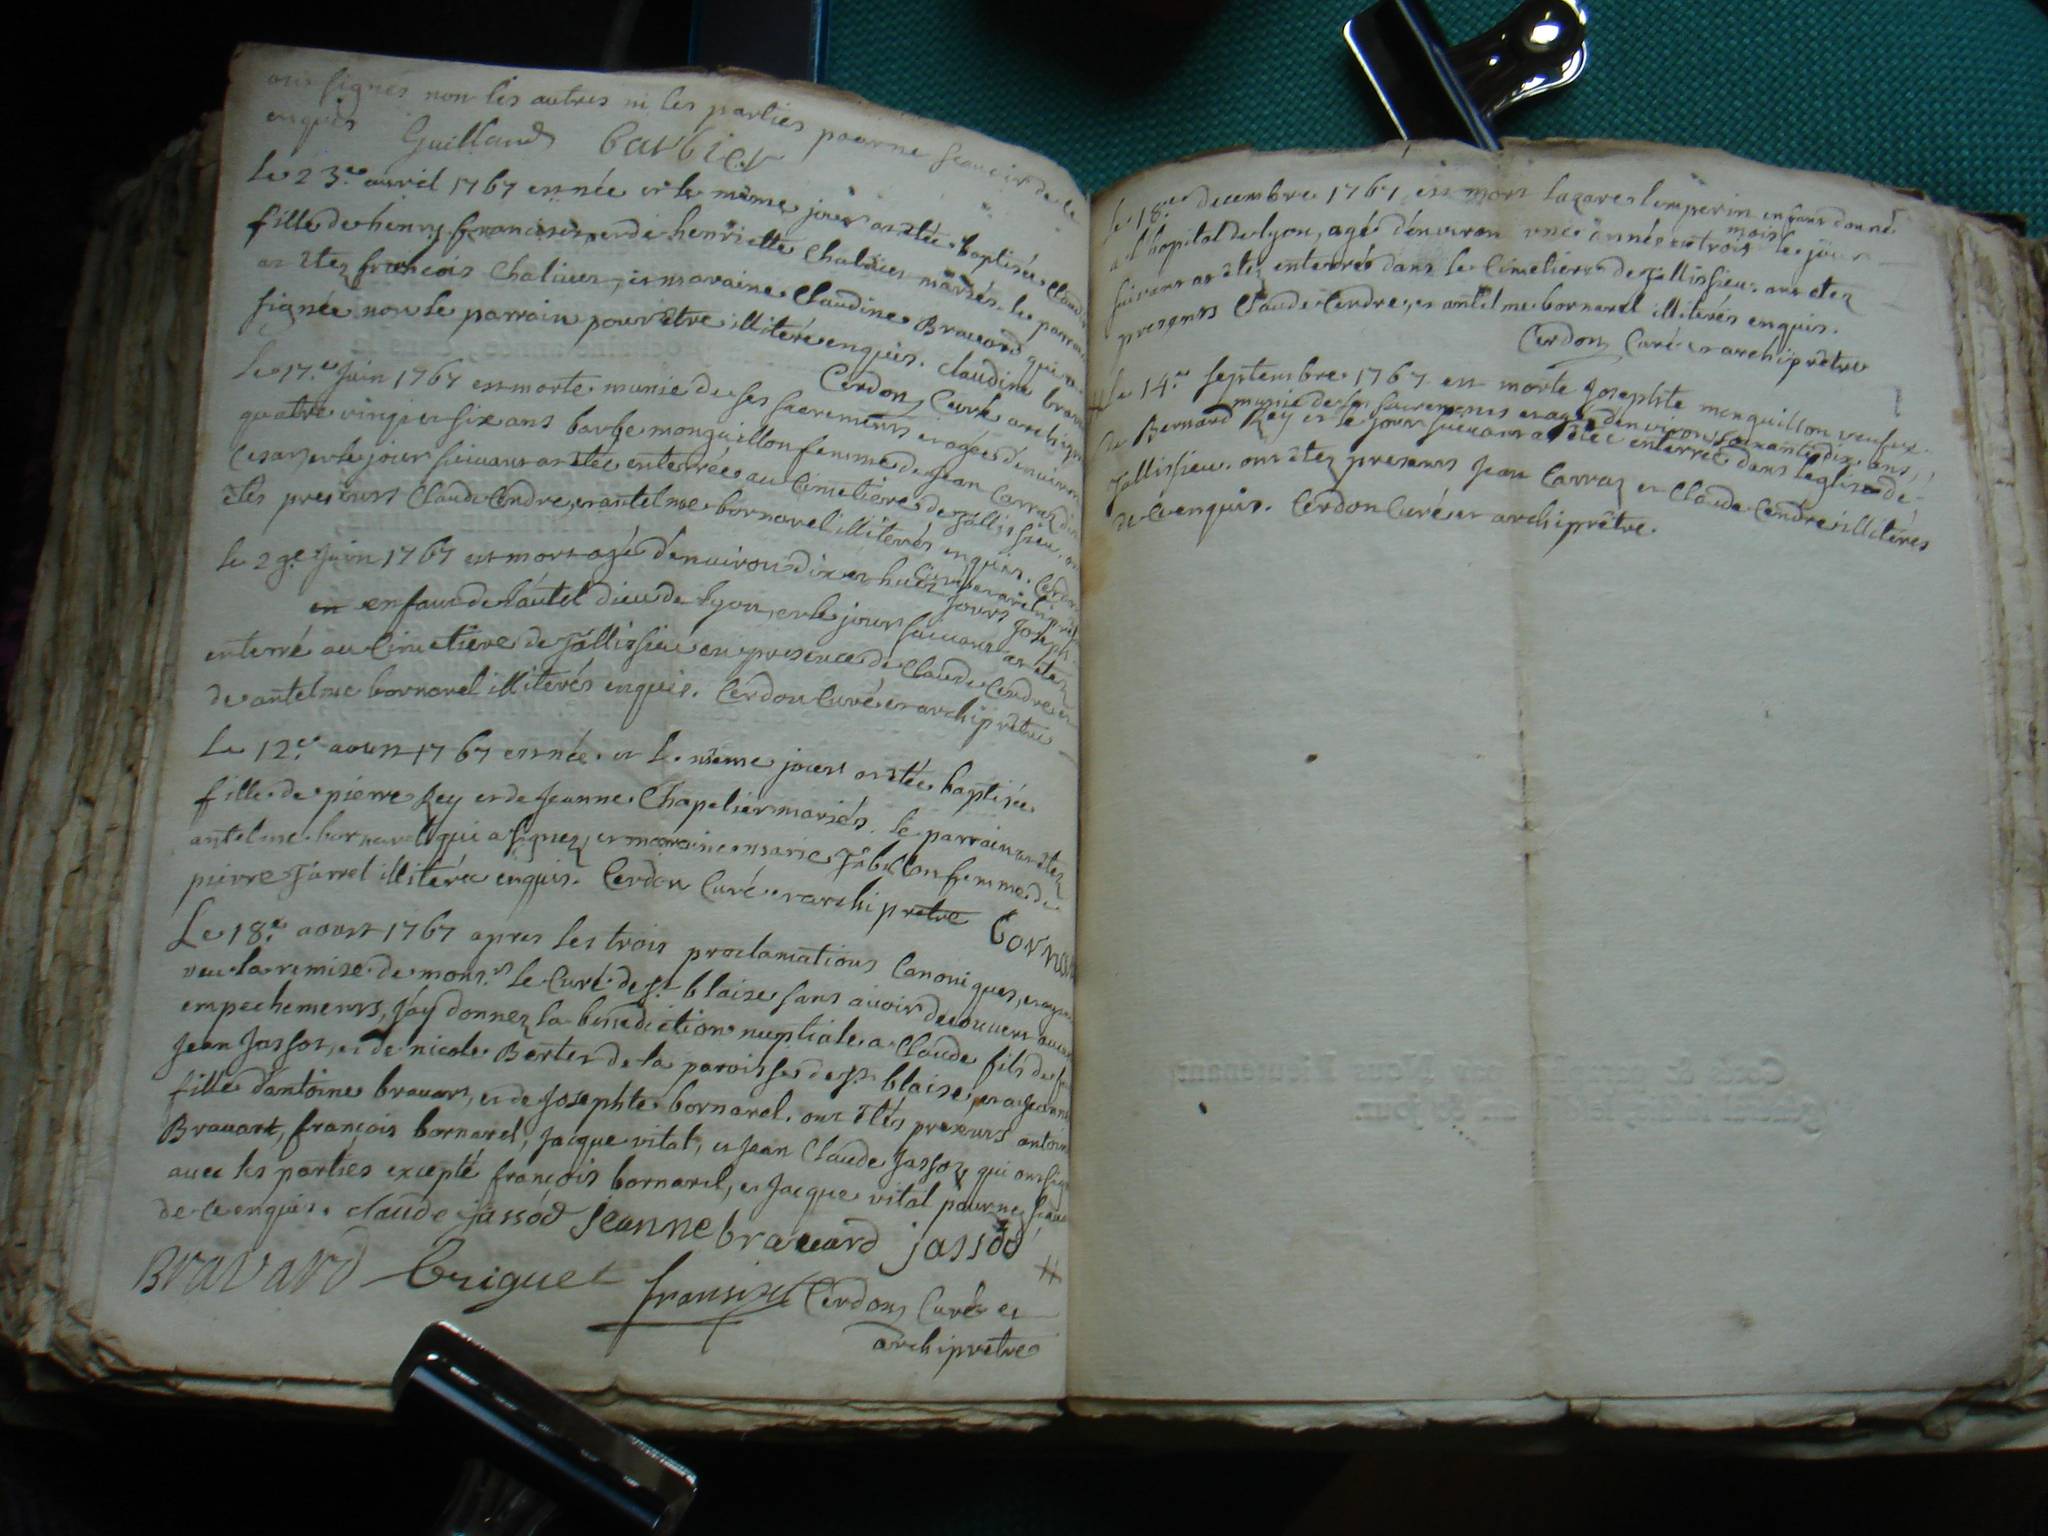 ont signés non les autres ni les parties pour ne scavoir de ce
enquis Guilland barbier
Le 23.e avril 1767 est née et le même jour at êtée baptisée Claudi
fille de henry françois et de henriette Chaliues mariés. le parrain
at êtez françois Chaliues, et maraine Claudine Bravard qui a
signée non le parrain pour être illitéré enquis. claudine brava
Cerdon Curé archip
Le 17.e Juin 1767 est morte munie de ses sacrements et agée d'environ
quatre vingt et six ans barbe monguillon femme de jean Carraz
et le jour suivant at êtée enterrée au Cimetiere de Tallissieu. ont
êtés presents Claude Cendre, et antelme bornarel illiterés enquis. Cerdon
Curé et archipret
le 29.e Juin 1767 est mort agé d'environ dix et huit jours Joseph
en enfant de l'autel dieu de lyon, et le jour suivant at êtez
enterré au Cimetiere de Tallissieu en presence de Claude Cendre et
de antelme bornarel illiterés enquis. Cerdon Curé et archiprêtre
Le 12.e aoust 1767 est née et le même jour at êtée baptisée
fille de pierre Rey et de Jeanne Chapelier mariés. le parrain at êtez
antelme bornarel qui a signez, et maraine marie femme de
pierre Jarrel illitérée enquis. Cerdon Curé et archiprêtre bornar
Le 18.e aoust 1767 apres les trois proclamations Canoniques, et ayant
veu la remise de mons.r le Curé de st. blaise sans avoir decouvert aucun
empechements, J'ay donnez la bénédiction nuptiale a Claude fils de feu
Jean Jassoz, et de nicole Berter de la paroisse de st. blaise, et a jeanne
fille d'antoine bravart, et de Josephte bornarel. ont êtés presents antoine
Bravart, françois bornarel, Jacque vital, et Jean Claude Jassoz qui ont sign
avec les parties excepté françois bornarel, et Jacque vital pour ne scav
de ce enquis. claude jassód jeanne bravard jassód
Bravard Criguet fransizet Cerdon Curé et
archiprêtre
le 18.e decembre 1767 est mort Lazare lemperin enfant donné
a l'hopital de lyon, agé d'environ une année et trois mois le jour
suivant at êtez enterré dans le Cimetiere de Tallissieu. ont êtez
presents Claude Cendre, et antelme bornarel illiterés enquis.
Cerdon Curé et archiprêtre
Le 14.e septembre 1767 est morte Josephte monguillon veufve
munie de ses sacrements et agée d'environ soixante dix ans,
de Bernard Rey et le jour suivant at êtée enterrée dans l'eglise de
Tallissieu. ont êtez presents Jean Carraz et Claude Cendre illiterés
de ce enquis. Cerdon Curé et archiprêtre.